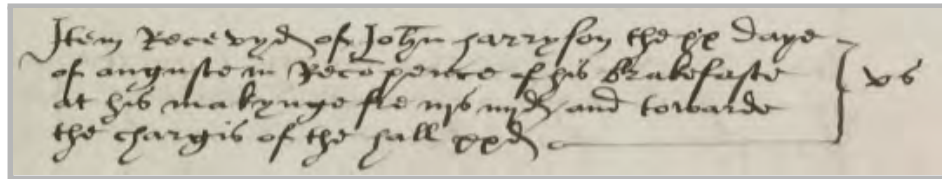 Item Recevyd of John harryson the xx daye
of auguste in Recōpence of his brakefaste
at his makynge fre iijs iiijd and towarde
the chargis of the hall xxd
vs